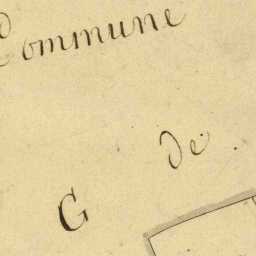 Commune
de
G